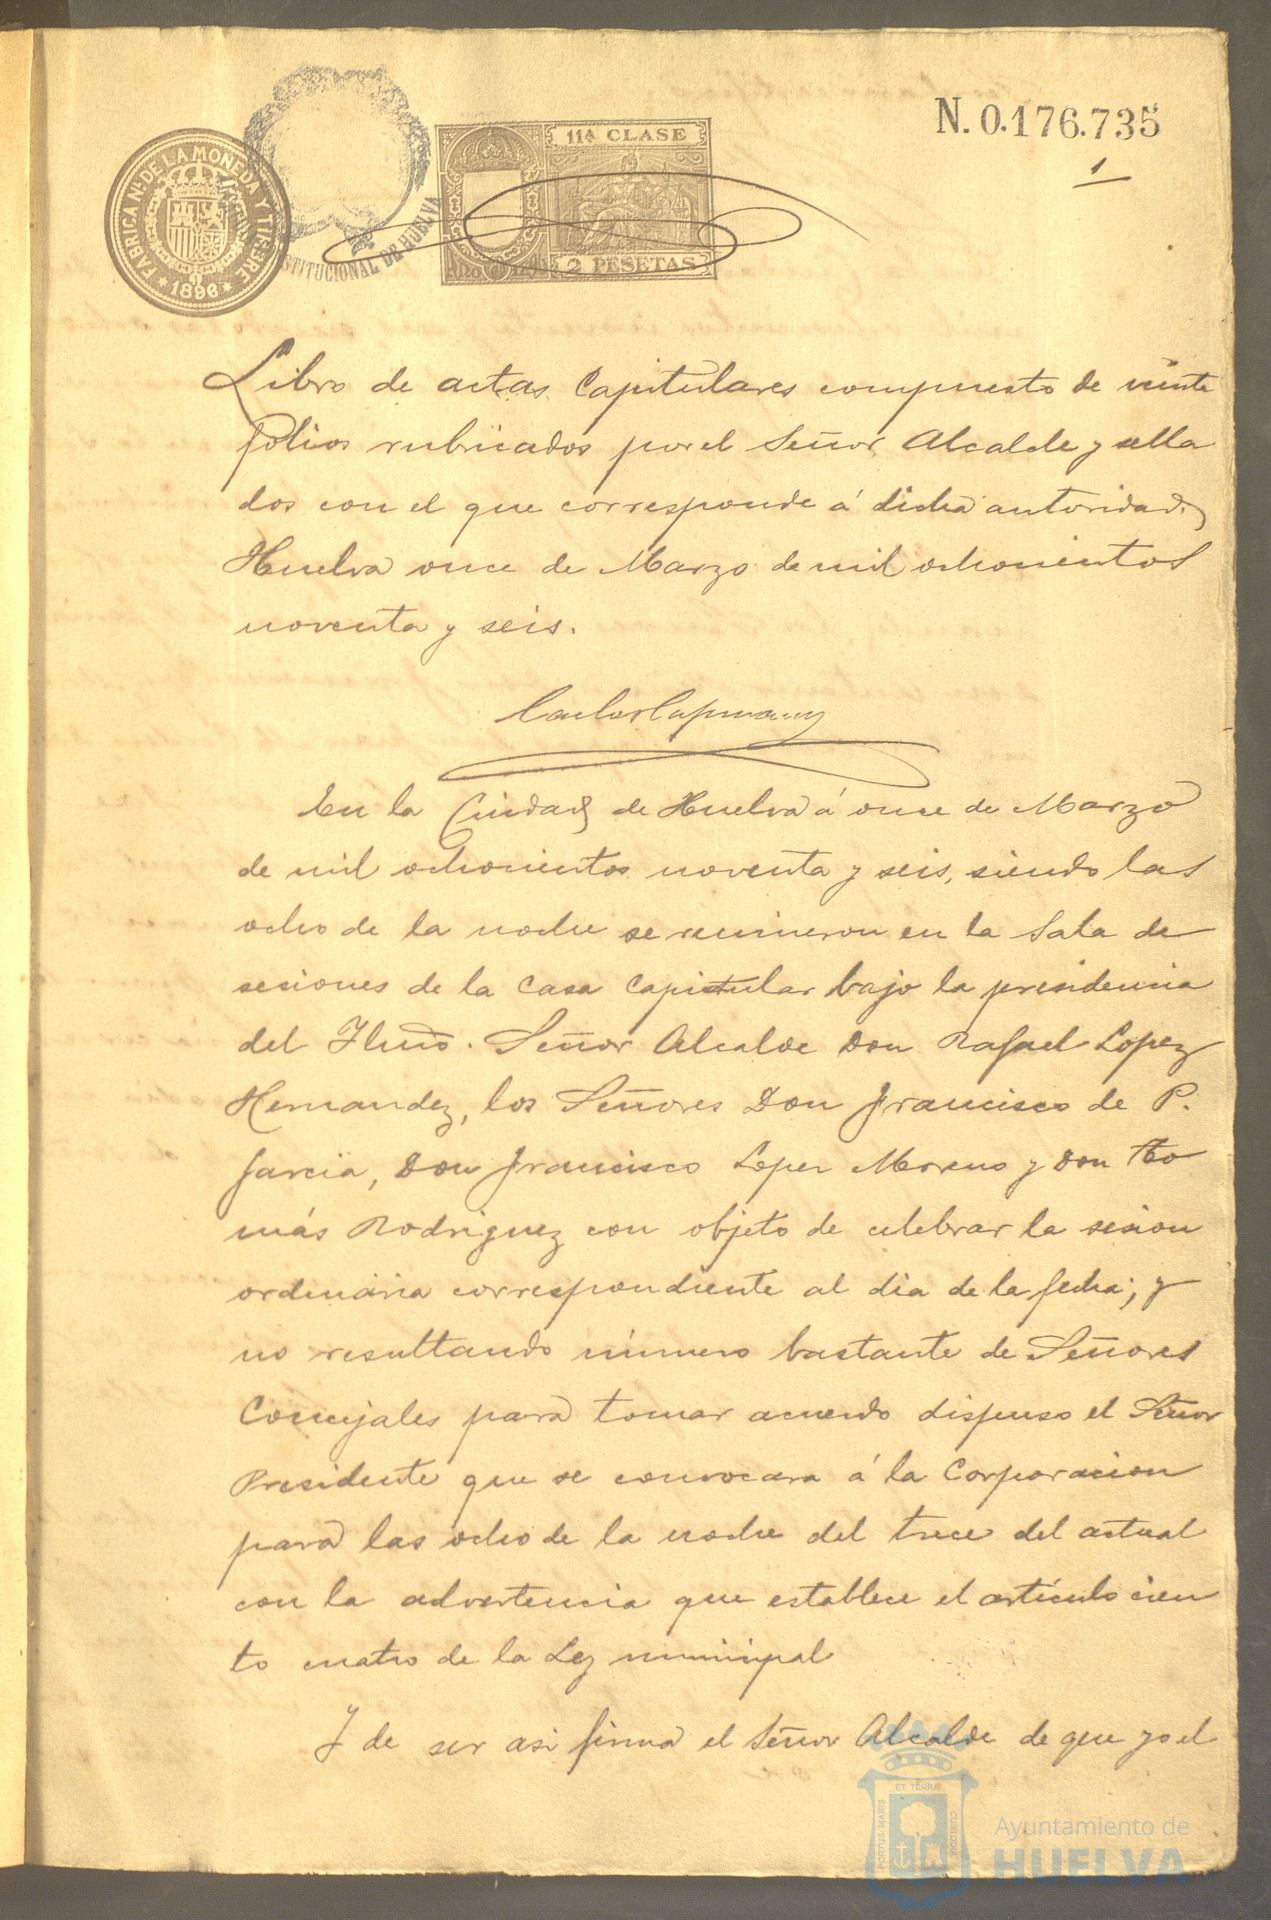 N. 0.176.735
1
FABRICA N.L DE LA MONEDA Y TIMBRE
1896
STITUCIONAL DE HUELVA
11ª CLASE
2 PESETAS
Libro de actas Capitulares compuesto de veinte
folios rubricados por el Señor Alcalde y sella
dos con el que corresponde á dicha autoridad.
Huelva once de Marzo de mil ochocientos
noventa y seis.
En la Ciudad de Huelva á once de Marzo
de mil ochocientos noventa y seis, siendo las
ocho de la noche se reunieron en la Sala de
sesiones de la Casa Capitular bajo la presidencia
del Iltmo. Señor Alcalde Don Rafael Lopez
Hernandez, los Señores Don Francisco de P.
Garcia, Don Francisco Lopez Moreno y Don To
más Rodriguez con objeto de celebrar la sesion
ordinaria correspondiente al dia de la fecha; y
no resultando número bastante de Señores
Concejales para tomar acuerdo dispuso el Señor
Presidente que se convocara á la Corporacion
para las ocho de la noche del trece del actual
con la advertencia que establece el artículo cien
to cuatro de la Ley municipal
Y de ser asi firma el Señor Alcalde de que yo el
PORTUS MARIS ET TERRAE CUSTODIA
Ayuntamiento de
HUELVA